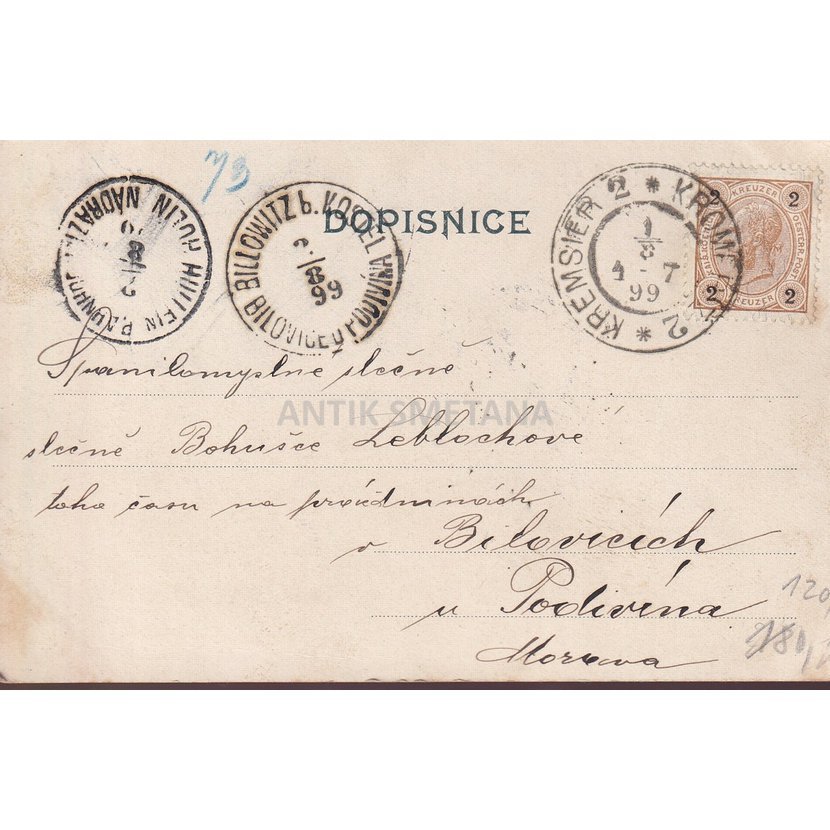 73
DOPISNICE
HULLEIN BAHNHOF HULÍN NÁDRAŽÍ
8
BILLOWITZ b. KOSTEL BILOVICE U PODIVÍNA
8
99
KREMSIER 2 * KROMĚŘÍŽ 2 *
1
8
4-7
99
2 KREUZER 2
2 KREUZER 2
Spanilomyslné slečně
ANTIK SMETANA
slečně Bohušce Leblochové
toho času na prázdninách
v Bilovicích
u Podivína
Morava
120,
180,